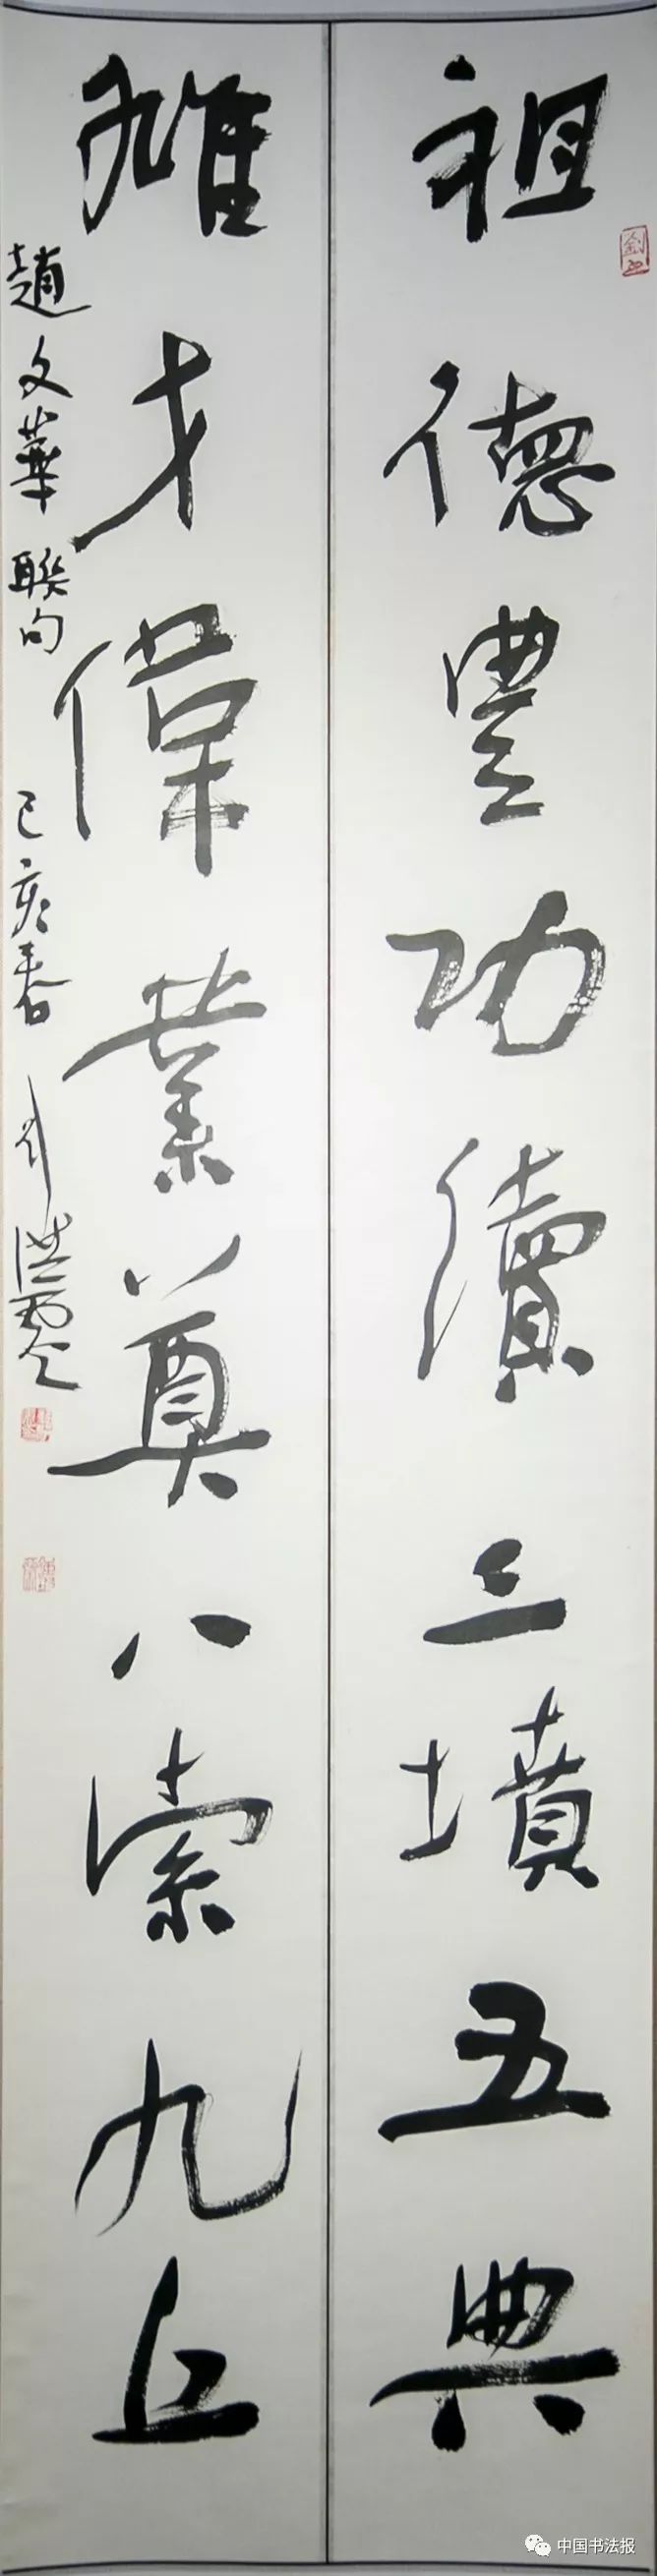 祖德豐功續三墳五典
雄才偉業奠八索九丘
趙文華聯句 己亥春 劉洪霞
中国书法报